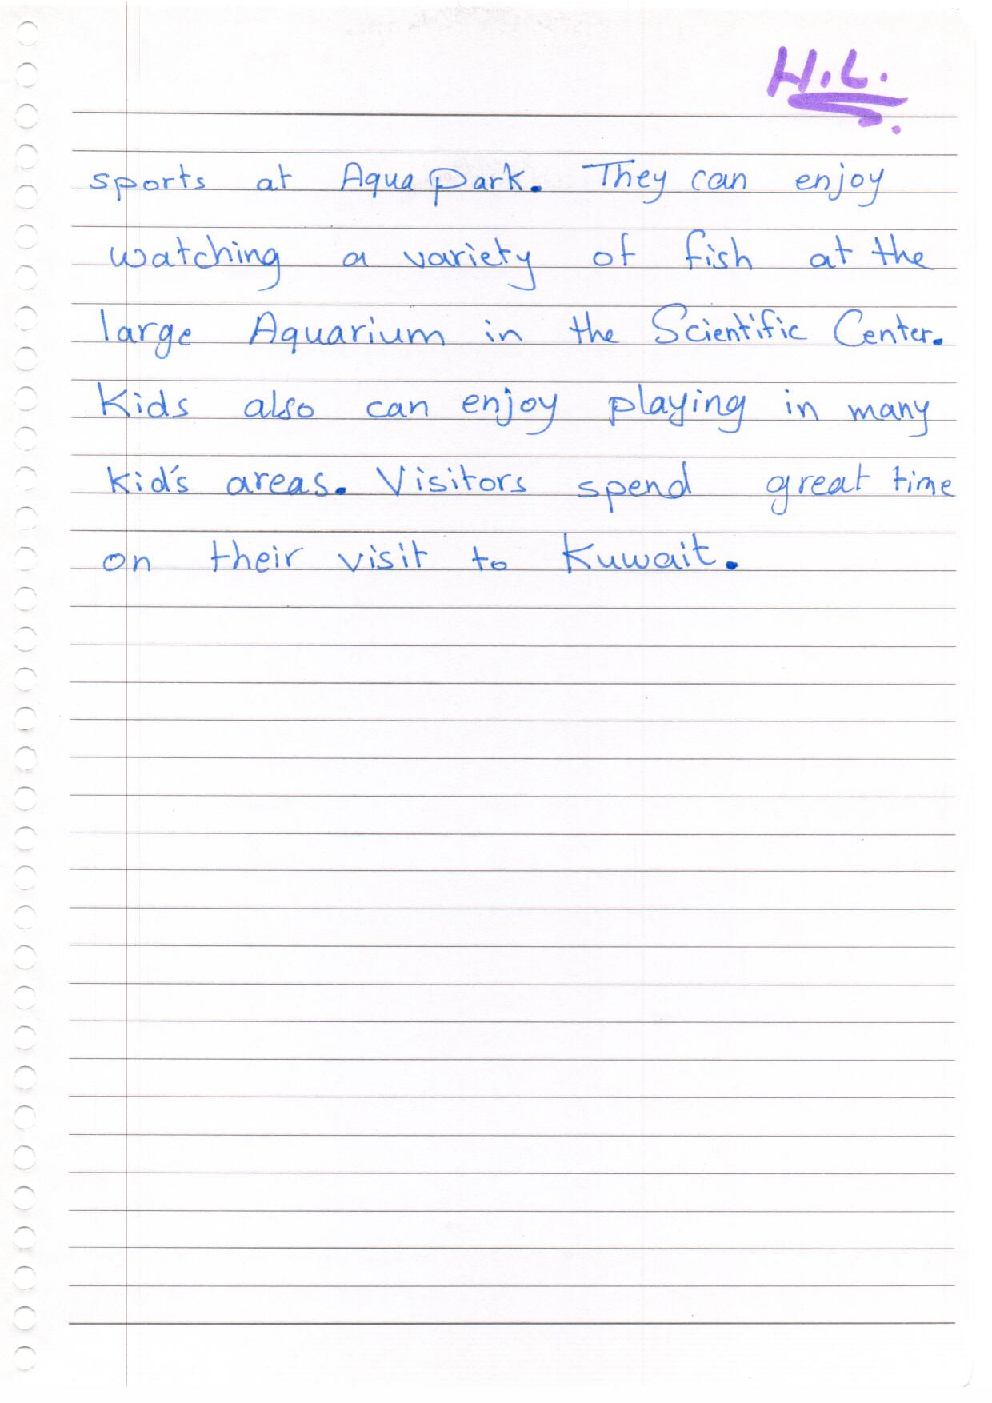 H.L.
sports at Aqua Park. They can enjoy
watching a variety of fish at the
large Aquarium in the Scientific Center.
Kids also can enjoy playing in many
kid's areas. Visitors spend great time
on their visit to Kuwait.